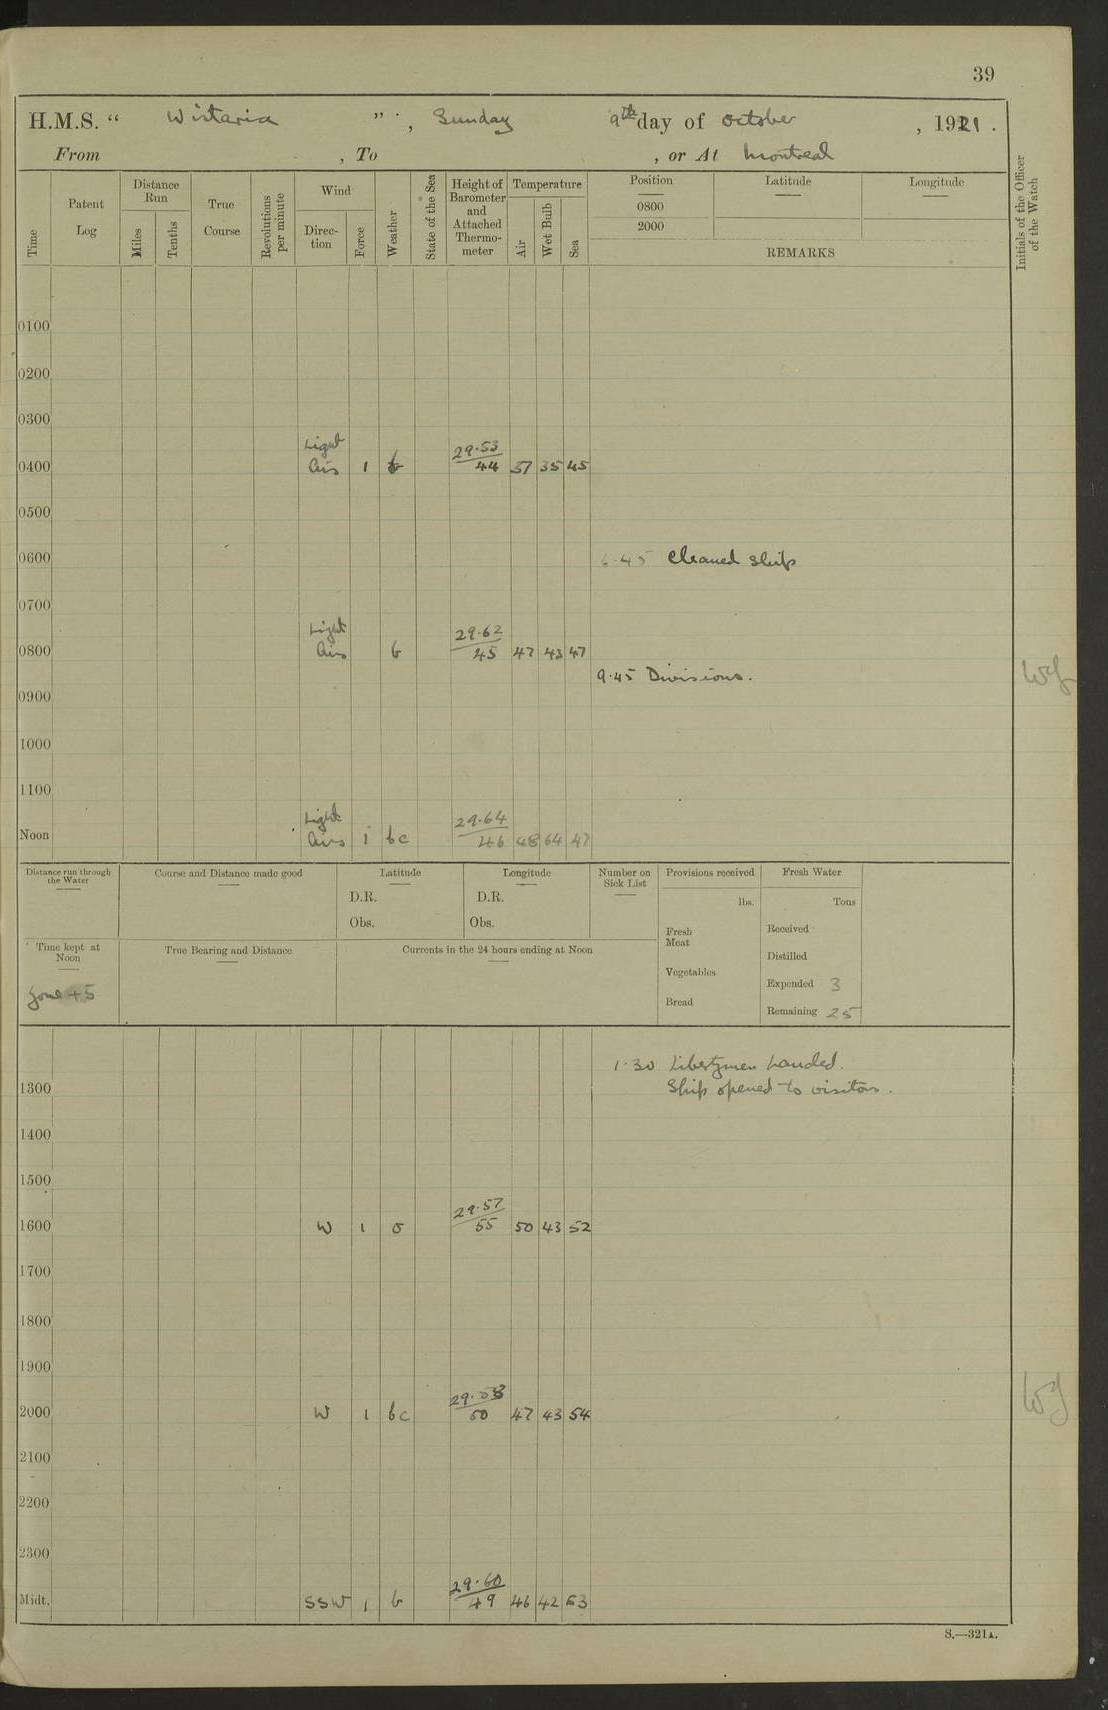 39
H.M.S. “ Wistaria ” , Sunday 9th day of October , 1921 .
From , To , or At Montreal
Time
Patent Log
Distance Run
Miles
Tenths
True Course
Revolutions per minute
Wind
Direc- tion
Force
Weather
State of the Sea
Height of Barometer and Attached Thermo- meter
Temperature
Air
Wet Bulb
Sea
Position
0800
2000
Latitude
Longitude
REMARKS
Initials of the Officer of the Watch
0100
0200
0300
Light 29·53
0400 Airs 1 b 44 37 35 45
0500
0600 6·45 Cleaned ship
0700
Light 29·62
0800 Airs b 45 47 43 47
9·45 Divisions.
0900
1000
1100
Light 29·64
Noon Airs 1 bc 46 48 64 47
Distance run through the Water
Course and Distance made good
Latitude
D.R.
Obs.
Longitude
D.R.
Obs.
Number on Sick List
Provisions received
lbs.
Fresh Meat
Vegetables
Bread
Fresh Water
Tons
Received
Distilled
Expended 3
Remaining 25
Time kept at Noon
Zone +5
True Bearing and Distance
Currents in the 24 hours ending at Noon
1·30 Libertymen Landed.
1300 Ship opened to visitors.
1400
1500
29·57
1600 W 1 o 55 50 43 52
1700
1800
1900
2000 W 1 bc 50 47 43 54
2100
2200
2300
29·60
Midt. SSW 1 b 49 46 42 53
S.—321A.